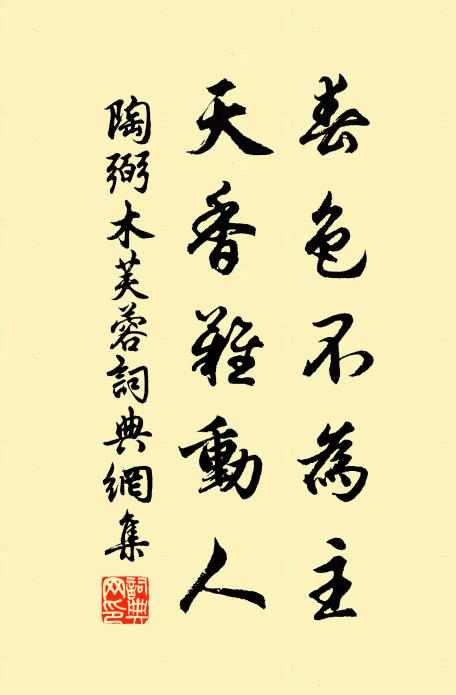 春色不為主
天香難動人
陶弼木芙蓉詞典網集
詞典网印